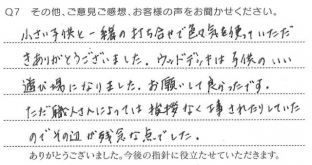 Q7 その他、ご意見ご感想、お客様の声をお聞かせください。
小さい子供と一緒の打ち合せで色々気を使っていただ
きありがとうございました。ウッドデッキは子供のいい
遊び場になりました。お願いして良かったです。
ただ職人さんによっては挨拶なく工事されたりしていた
のでその辺が残念な点でした。
ありがとうございました。今後の指針に役立たせていただきます。